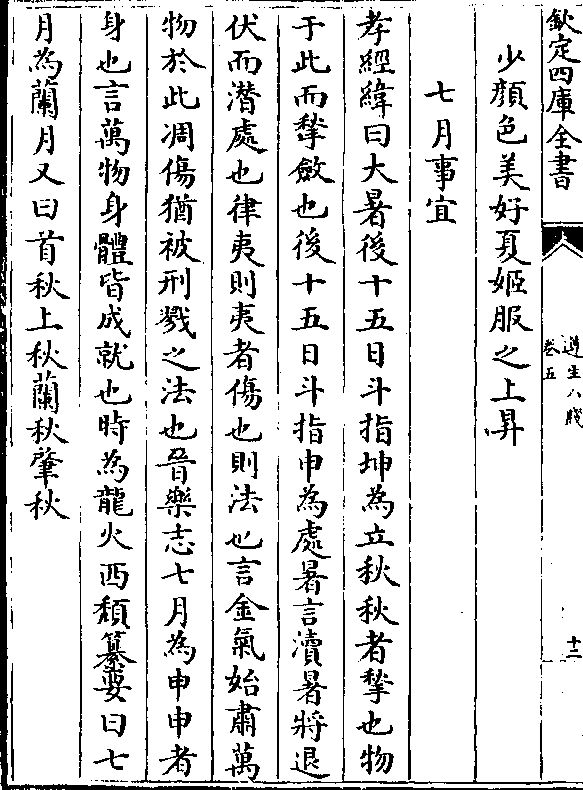 欽定四庫全書
遵生八牋
卷五
十二
少顏色美好夏姬服之上昇
七月事宜
孝經緯曰大暑後十五日斗指坤為立秋秋者揫也物
于此而揫斂也後十五日斗指申為處暑言瀆暑將退
伏而潛處也律夷則夷者傷也則法也言金氣始肅萬
物於此凋傷猶被刑戮之法也晉樂志七月為申申者
身也言萬物身體皆成就也時為龍火西頹纂要曰七
月為蘭月又曰首秋上秋蘭秋肇秋